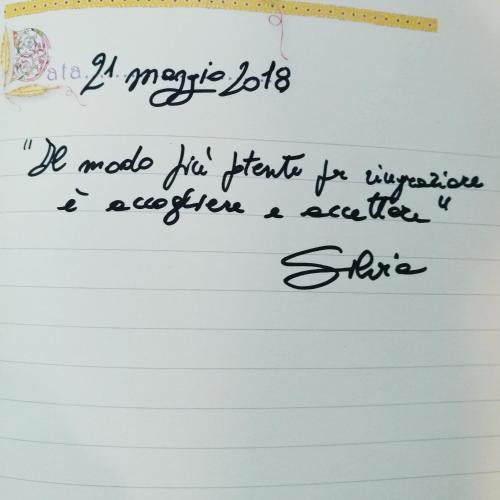 Data 21 maggio 2018
"Il modo più potente per ringraziare
è accogliere e accettare"
Silvia